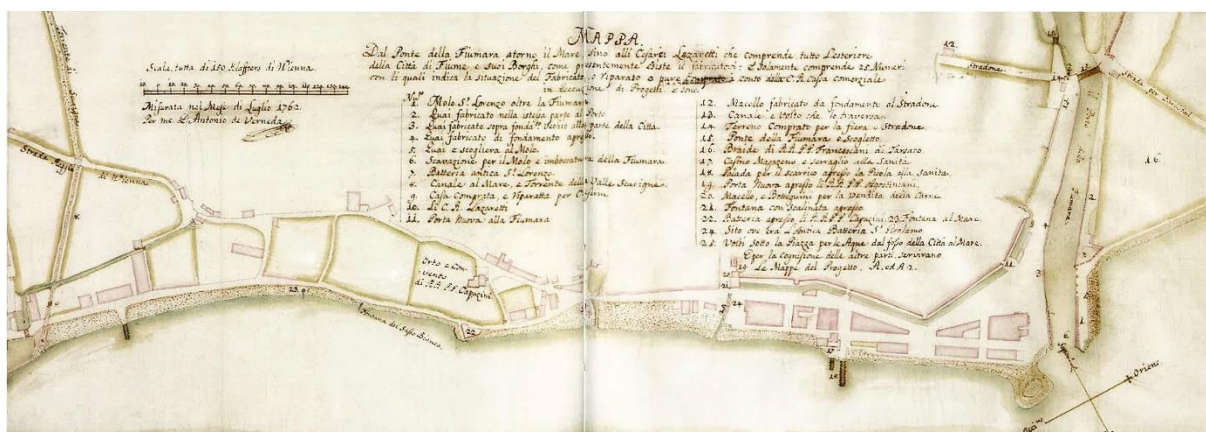 MAPPA
Dal Ponte della Fiumara atorno il Mare sino alli Cesarei Lazaretti che comprende tutto l'esteriore
della Città di Fiume e suoi Borghi, come presentemente Esiste il fabricato; e Palamente comprende 25 Numeri
con li quali indica la Situazione del Fabricato, o Riparato o pure Comprato à conto della C. R. Cassa comerziale
in Essecuzione di Progetti, e sono.
Scala tutta di 150 Klafftern di Wienna
Misurata nel Mese di Luglio 1762.
Per me L. Antonio de Verneda
Num.
1. Molo S. Lorenzo oltre la Fiumara
2. Quai fabricato nella istessa parte al Ponte
3. Quai fabricato sopra fond. Vechio alla parte della Città
4. Quai fabricato di fondamento apresso
5. Quai e Scogliera al Molo
6. Scavazione per il Molo e imboccatura della Fiumara
7. Batteria antica S. Lorenzo
8. Canale al Mare, e Torrente della Valle Scurigne
9. Casa Comprata, e Riparatta per Caserm
10. Li C. R. Lazaretti
11. Porta Nuova alla Fiumara
12. Macello fabricato da fondamento al Stradone
13. Canale e Volto che lo traversa
14. Terreno Comprato per la fiera e Stradone
15. Ponte della Fiumara e Scogletto
16. Braide di R.R. P.P. Francescani di Tarsaco
17. Casino Magazeno e Serraglio alla Sanità
18. Palada per il scarrio apresso la Pusla alla Sanità
19. Porta Nuova apresso li R.R. P.P. Agostiniani
20. Macello, e Botteguini per la Vendita della Carne
21. Fontana con Scalinata apresso
22. Batteria apresso li R.R. P.P. Capuzini, 23. Fontana al Mare
24. Sito ove era l'Antica Batteria S. Girolamo
25. Volti sotto la Piazza per le Aque dal fosso della Città al Mare.
E per la Cognisione delle altre parti, Servirano
Le Mappe del Progetto, A, ed A 2.
Strada Regia
di Wienna
Orto e Con-
vento
di R.R. P.P. Capuzini
Fontana del Sasso Bianco
Stradone
Oriens
12
16
11
22
23